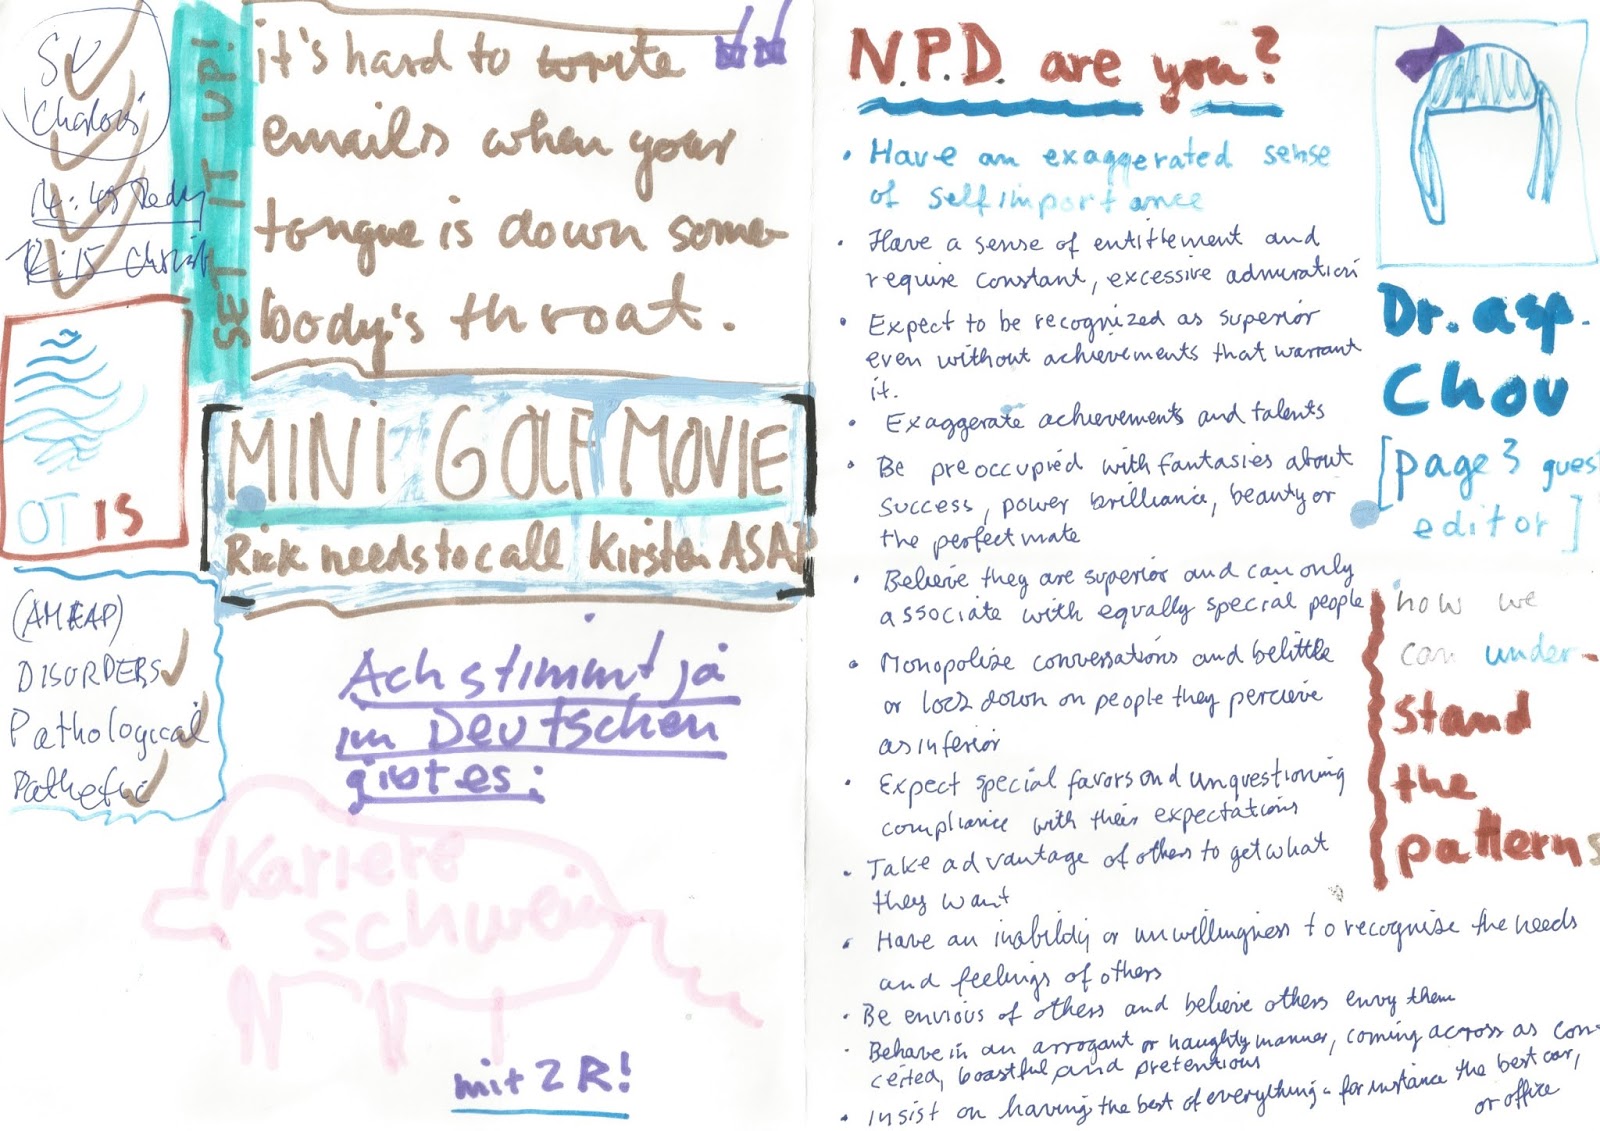 14:45
SET IT UP!
it's hard to write
emails when your
tongue is down some-
body's throat.
MINI GOLF MOVIE
Rick needs to call Kirsten ASAP
OTIS
DISORDERS
Pathological
Pathetic
Ach stimmt ja
im Deutschen
gibt es:
Kariere
schwein
mit 2 R!
N.P.D. are you?
• Have an exaggerated sense
of selfimportance
• Have a sense of entitlement and
require constant, excessive admiration
• Expect to be recognized as superior
even without achievements that warrant
it.
• Exaggerate achievements and talents
• Be preoccupied with fantasies about
success, power brilliance, beauty or
the perfect mate
• Believe they are superior and can only
associate with equally special people
• Monopolize conversations and belittle
or look down on people they percieve
as inferior
• Expect special favors and unquestioning
compliance with their expectations
• Take advantage of others to get what
they want
• Have an inability or unwillingness to recognize the needs
and feelings of others
• Be envious of others and believe others envy them
• Behave in an arrogant or haughty manner, coming across as con-
ceited, boastful and pretentious
• Insist on having the best of everything - for instance the best car,
or office
Dr. asp.
Chou
[page 3 guest
editor]
how we
can under-
stand
the
patterns